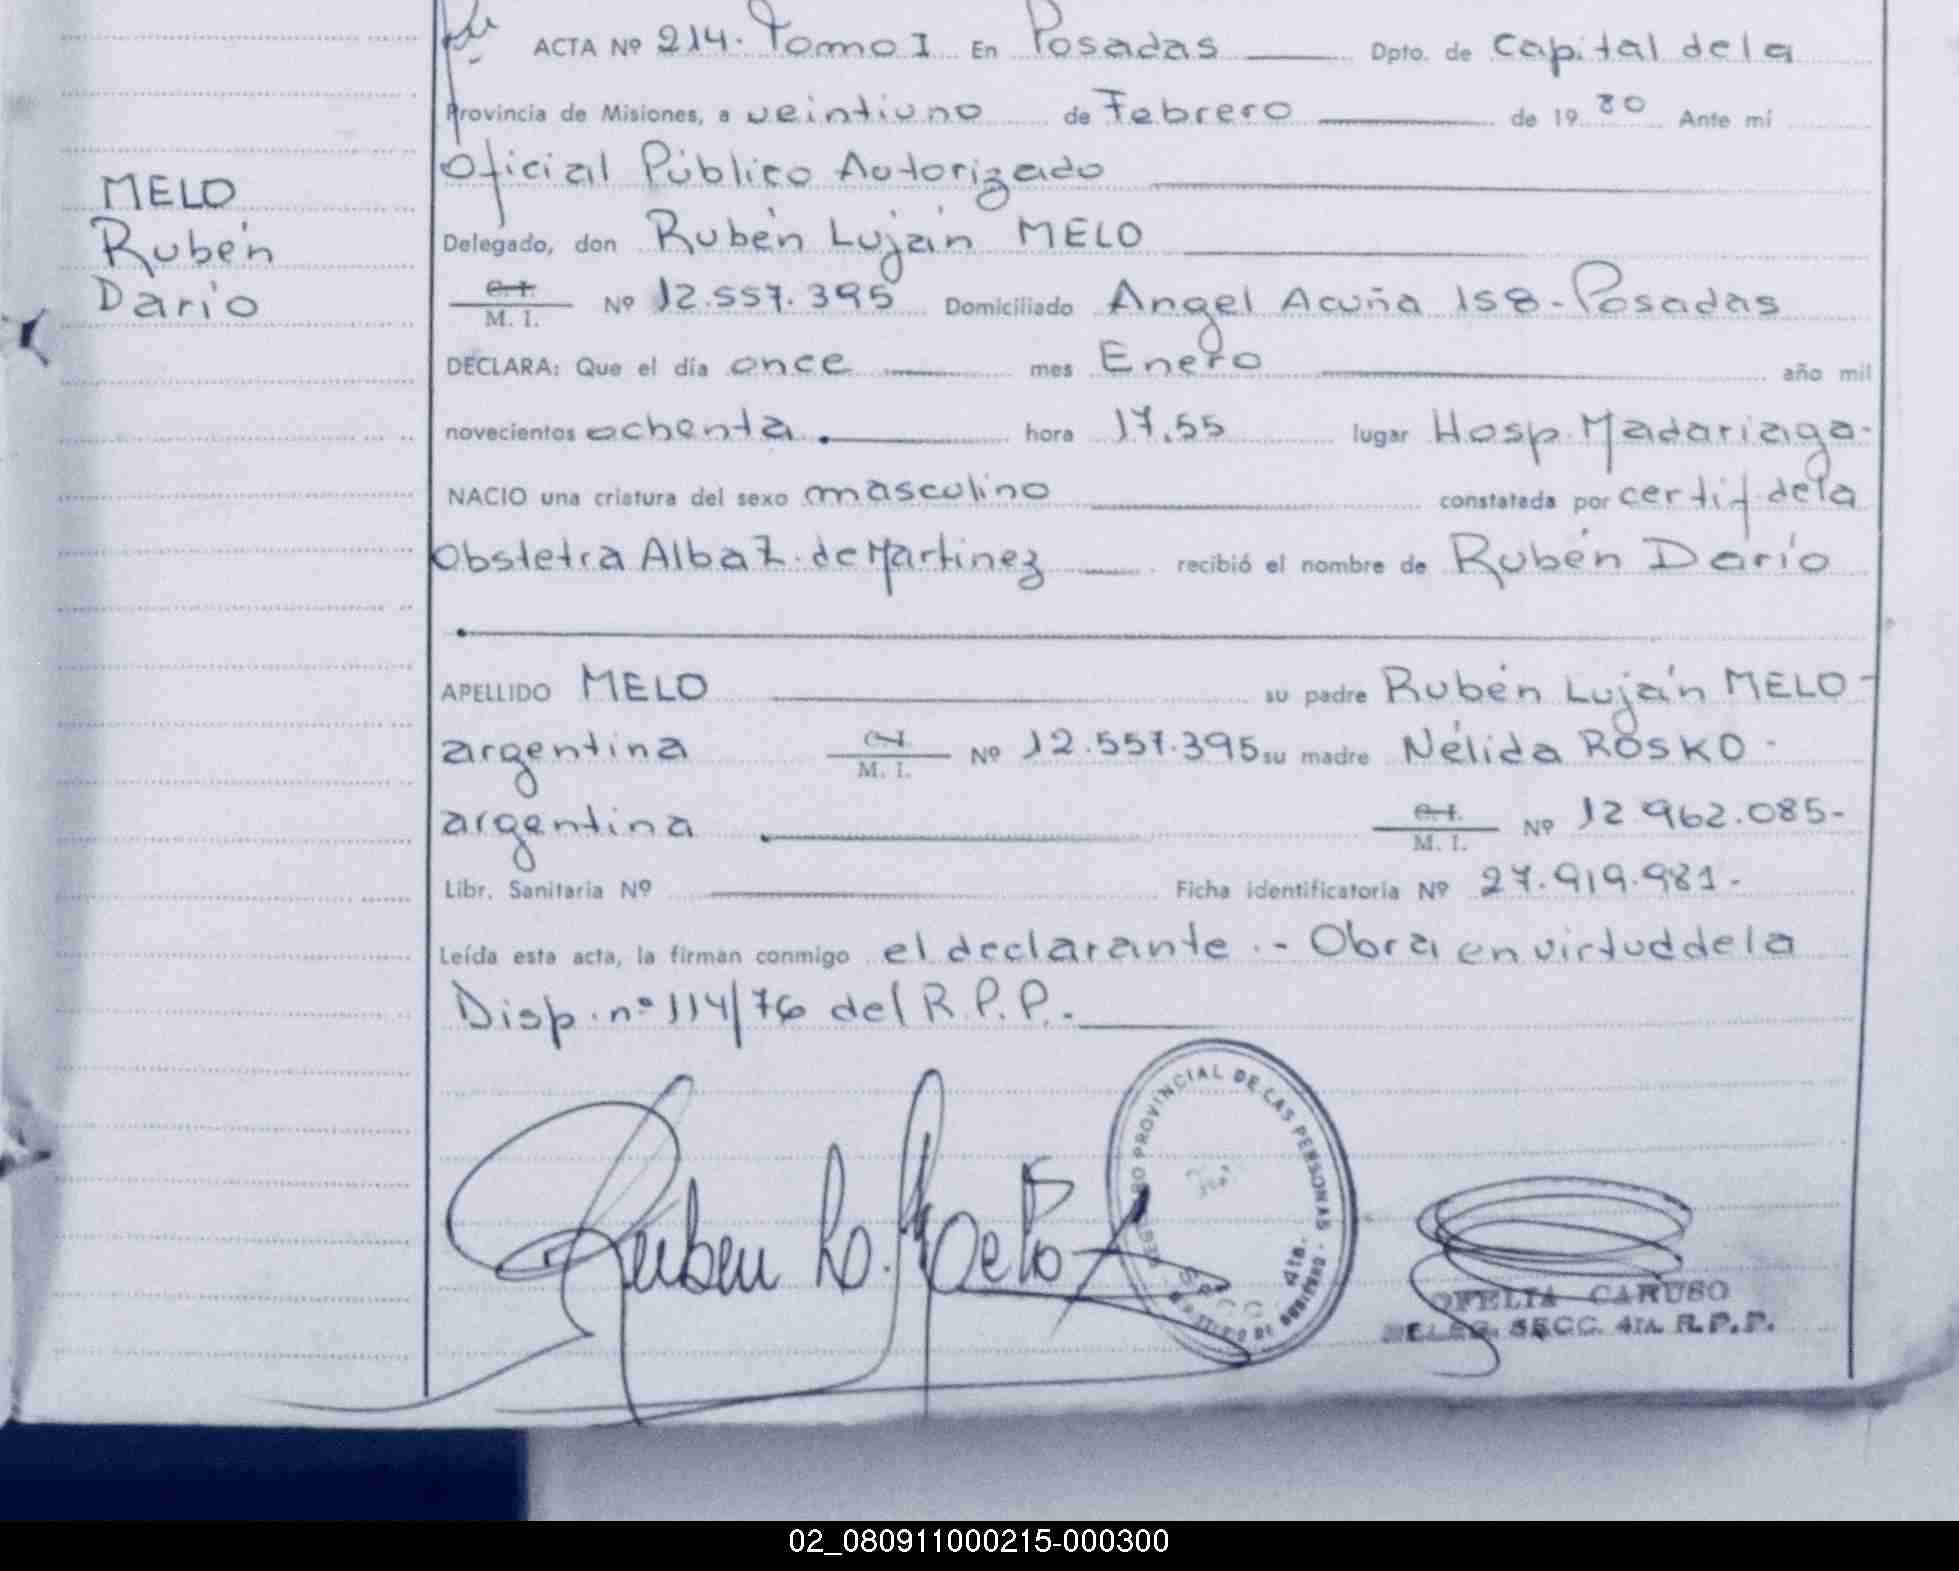 ACTA Nº 214. Tomo I En Posadas Dpto. de Capital de la
Provincia de Misiones, a veintiuno de Febrero de 1980 Ante mi
Oficial Público Autorizado
MELO
Rubén
Darío
Delegado, don Rubén Luján MELO
C. I. M. I. Nº 12.557.395 Domiciliado Angel Acuña 158 - Posadas
DECLARA: Que el día once mes Enero año mil
novecientos ochenta. hora 17,55 lugar Hosp. Madariaga.
NACIO una criatura del sexo masculino constatada por certif. de la
Obstetra Alba Z. de Martinez recibió el nombre de Rubén Darío
APELLIDO MELO su padre Rubén Luján MELO -
argentina C. I. M. I. Nº 12.557.395 su madre Nélida ROSKO -
argentina C. I. M. I. Nº 12.962.085-
Libr. Sanitaria Nº Ficha identificatoria Nº 27.919.981-
Leída esta acta, la firman conmigo el declarante.- Obra en virtud de la
Disp. nº 114/76 del R.P.P.-
REGISTRO PROVINCIAL DE LAS PERSONAS
MINISTERIO DE GOBIERNO
SECC 4ta.
Ruben L. Melo
OFELIA CARUSO
DELEG. SECC. 4TA. R.P.P.
02_080911000215-000300